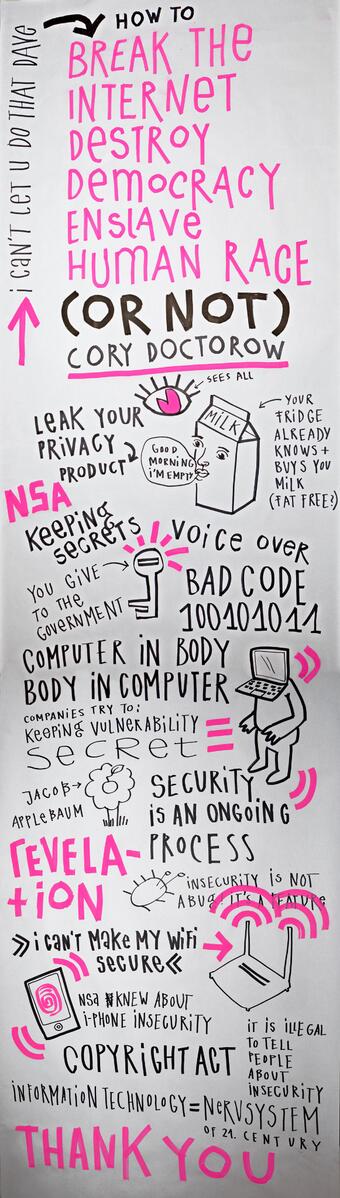 i CAN'T LET U DO THAT DAVE
HOW TO
BREAK THE
INTERNET
DESTROY
DEMOCRACY
ENSLAVE
HUMAN RACE
(OR NOT)
CORY DOCTOROW
SEES ALL
LEAK YOUR
PRIVACY
PRODUCT
GOOD
MORNING
i'M EMPTY
MiLK
YOUR
FRIDGE
ALREADY
KNOWS +
BUYS YOU
MiLK
(FAT FREE?)
NSA
KEEPING
SECRETS
YOU GIVE
TO THE
GOVERNMENT
VOICE OVER
BAD CODE
100101011
COMPUTER IN BODY
BODY IN COMPUTER
COMPANIES TRY TO:
KEEPING VULNERABILITY
SECRET
JACOB
APPLEBAUM
SECURITY
IS AN ONGOING
PROCESS
REVELA-
TION
INSECURITY IS NOT
A BUG IT'S A FEATURE
» i CAN'T MAKE MY WiFi
SECURE «
NSA KNEW ABOUT
i-PHONE INSECURITY
IT IS ILLEGAL
TO TELL
PEOPLE
ABOUT
INSECURITY
COPYRIGHT ACT
INFORMATION TECHNOLOGY = NERVSYSTEM
OF 21. CENTURY
THANK YOU